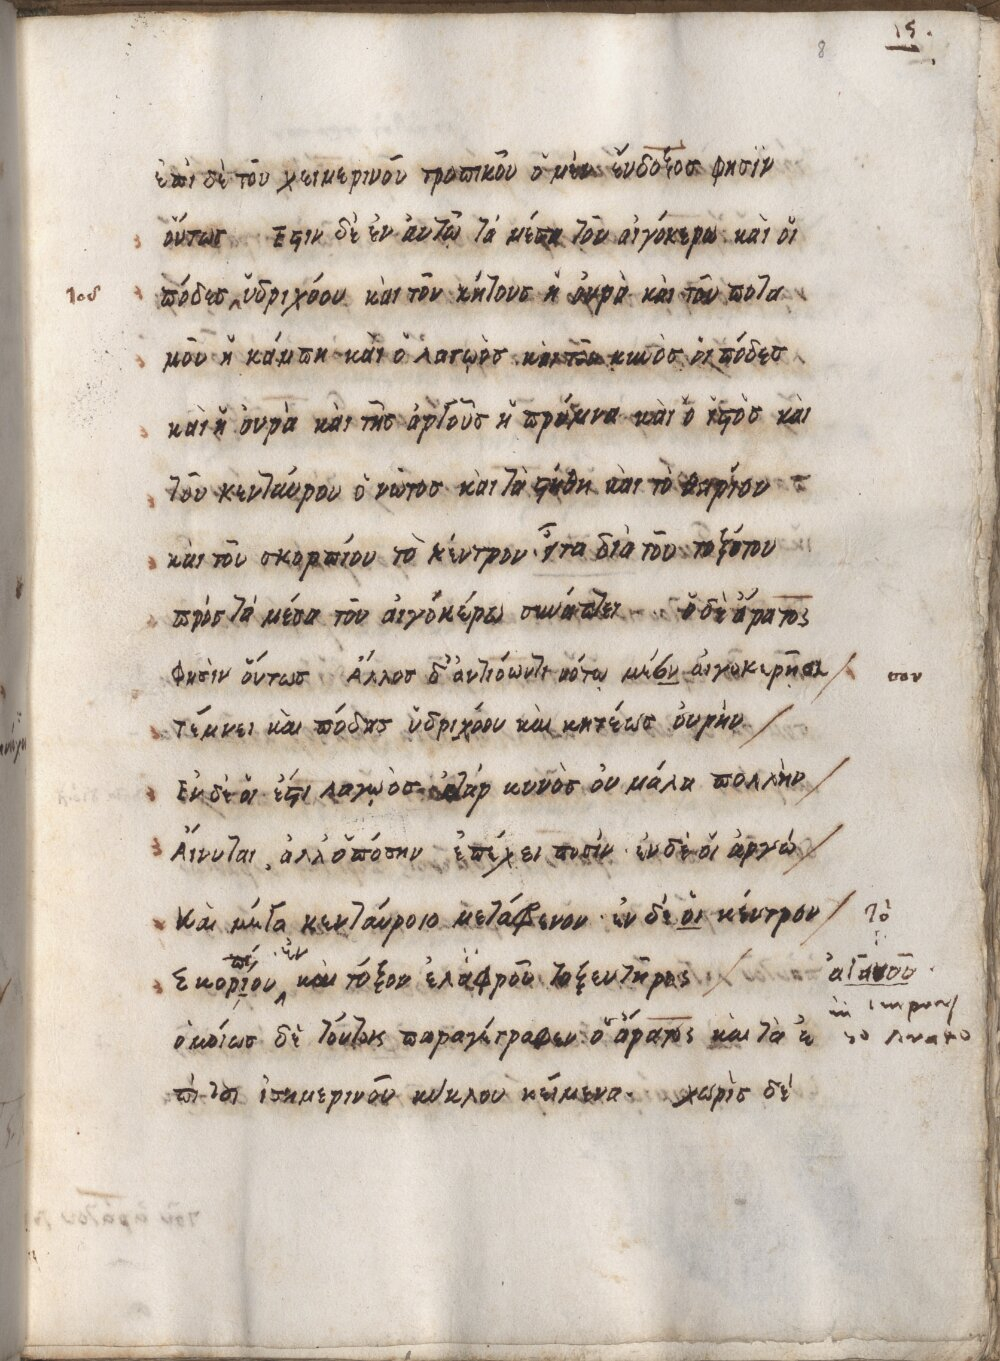 15.
8
ἐπὶ δὲ τοῦ χειμερινοῦ τροπικοῦ ὁ μὲν ἔυδοξος φησὶν
ὅυτως Εστιν δὲ ἐν ἀυτῶ τὰ μέσα τοῦ αἰγόκερω καὶ οἱ
τοῦ
πόδες ὑδριχόου καὶ τοῦ κήτους ἡ ὀυρὰ καὶ τοῦ ποτα
μοῦ ἡ κάμπη καὶ ὁ λαγωὸς καὶ τοῦ κυνὸς ὁι πόδες
καὶ ἡ ὀυρὰ καὶ τῆς ἀργοῦς ἡ πρύμνα καὶ ὁ ἱστὸς καὶ
τοῦ κενταύρου ὁ νῶτος καὶ τὰ στήθη καὶ τὸ θηρίον
καὶ τοῦ σκορπίου τὸ κέντρον εἶτα διὰ τοῦ τοξότου
πρὸς τὰ μέσα τοῦ αἰγόκέρω συνάπτει ὁ δὲ ἄρατος
φησὶν ὅυτως Ἄλλος δ' ἀντιόωντι νότω μέσον αἰγοκερῆα
Τέμνει καὶ πόδας ὑδριχόου καὶ κητέως ὀυρὴν
Εν δὲ ὁι ἐστι λαγωὸς ἀτὰρ κυνὸς ὀυ μάλα πολλὴν
Ἄινυται ἀλλ' ὁπόσην ἐπέχει ποσίν ἐν δὲ ὁι ἀργώ
Καὶ μέγα κενταύροιο μετάφενον ἐν δὲ ὁι κέντρον
τὸ
πί ἐν
Σκορπίου καὶ τόξον ἐλαφροῦ τοξευτῆρος
ἀγαυοῦ
ὁμοίως δὲ τούτοις παραγέγραφεν ὁ ἄρατος καὶ τὰ ἐ
πὶ τοῦ ἰσημερινοῦ κύκλου κείμενα χωρὶς δὲ